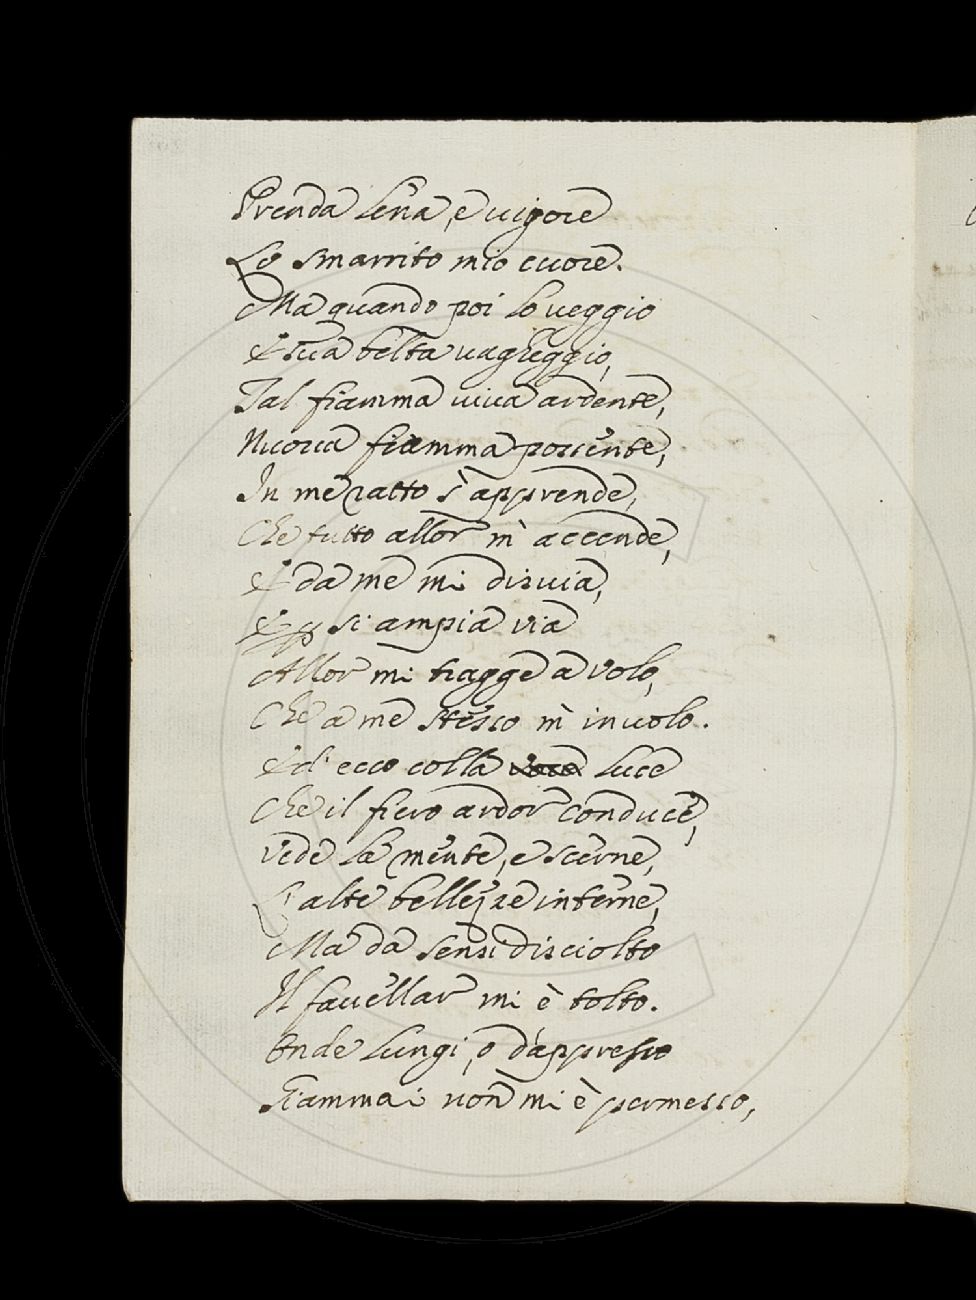 Prenda lena, e vigore
Lo smarrito mio cuore.
Ma quando poi lo veggio
E sua beltà vagheggio,
Tal fiamma viva ardente,
Nuova fiamma possente,
In me ratto s'apprende,
Che tutto allor m'accende,
E da me mi disvia,
E p si ampia via
Allor mi tragge a volo,
Che a me stesso m'involo.
Ed ecco colla luce
Che il fiero ardor conduce,
Vede la mente, e scerne,
L'alte bellezze interne,
Ma da sensi disciolto
Il favellar mi è tolto.
Onde lungi, o d'appresso
Giammai non mi è permesso,